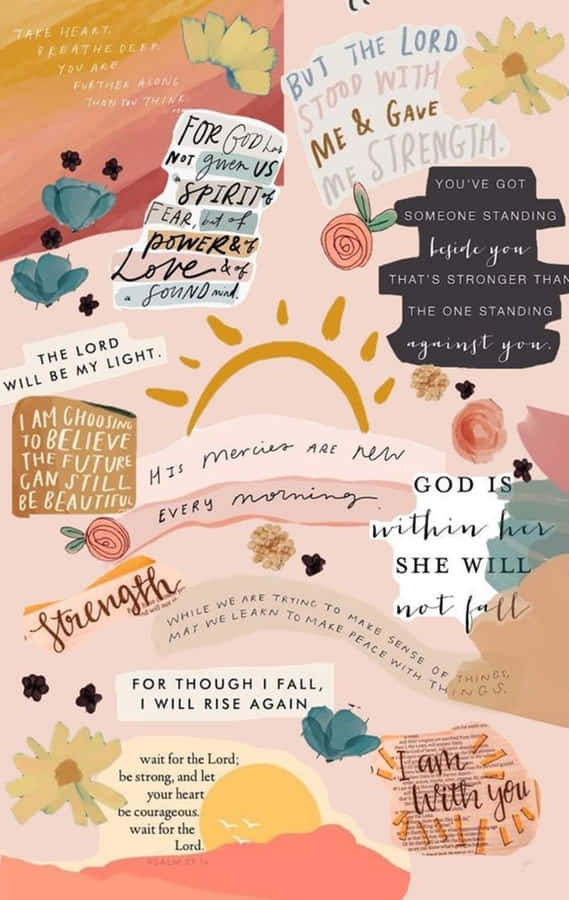 TAKE HEART.
BREATHE DEEP.
YOU ARE
FURTHER ALONG
THAN YOU THINK.
BUT THE LORD
STOOD WITH
ME & GAVE
ME STRENGTH.
FOR GOD has
NOT given US
a SPIRIT of
FEAR, but of
POWER & of
LOVE & of
a SOUND mind.
YOU'VE GOT
SOMEONE STANDING
beside you
THAT'S STRONGER THAN
THE ONE STANDING
against you.
THE LORD
WILL BE MY LIGHT.
I AM CHOOSING
TO BELIEVE
THE FUTURE
CAN STILL
BE BEAUTIFUL
HIS mercies ARE new
EVERY morning.
GOD IS
within her
SHE WILL
not fall
strength
WHILE WE ARE TRYING TO MAKE SENSE OF THINGS,
MAY WE LEARN TO MAKE PEACE WITH THINGS.
FOR THOUGH I FALL,
I WILL RISE AGAIN
wait for the Lord;
be strong, and let
your heart
be courageous.
wait for the
Lord.
PSALM 27:14
I am
with you